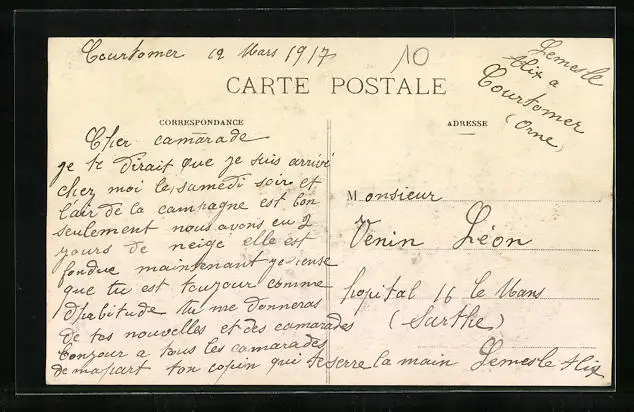 Courtomer 12 Mars 1917
10
Lemesle
Alix a
Courtomer
(Orne)
CARTE POSTALE
CORRESPONDANCE
Cher camarade
je te dirait que je suis arrivé
chez moi le samedi soir et
l'air de la campagne est bon
seulement nous avons eu 2
jours de neige elle est
fondue maintenant je pense
que tu est toujour comme
d'habitude tu me donneras
de tes nouvelles et des camarades
bonjour a tous les camarades
de ma part ton copin qui te serre la main Lemesle Alix
ADRESSE
Monsieur
Venin Léon
hopital 16 le Mans
(Sarthe)